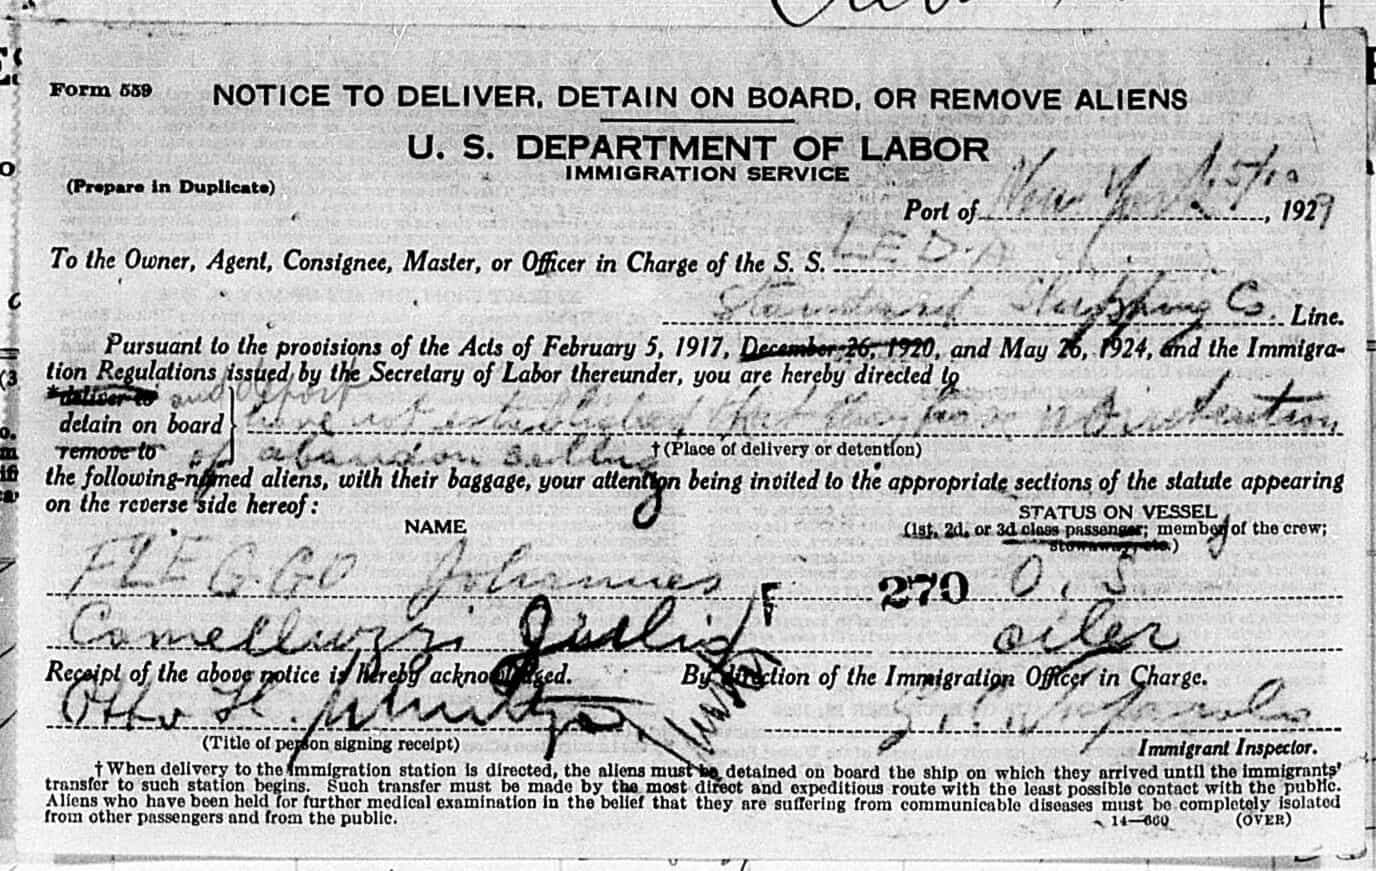 Form 559 NOTICE TO DELIVER, DETAIN ON BOARD, OR REMOVE ALIENS
U. S. DEPARTMENT OF LABOR
IMMIGRATION SERVICE
(Prepare in Duplicate)
Port of New York 5/10, 1929
To the Owner, Agent, Consignee, Master, or Officer in Charge of the S. S. LEDA
Standard Shipping Co. Line.
Pursuant to the provisions of the Acts of February 5, 1917, December 26, 1920, and May 26, 1924, and the Immigra-
tion Regulations issued by the Secretary of Labor thereunder, you are hereby directed to
*deliver to and deport
detain on board have not established that they have no intention
remove to of abandon calling †(Place of delivery or detention)
the following-named aliens, with their baggage, your attention being invited to the appropriate sections of the statute appearing
on the reverse side hereof:
NAME STATUS ON VESSEL
(1st, 2d, or 3d class passenger; member of the crew;
stowaway, etc.)
FLEGGO Johannes 270 O. S.
Camelluzzi Giulio oiler
Receipt of the above notice is hereby acknowledged. By direction of the Immigration Officer in Charge.
Otto H.
(Title of person signing receipt) Immigrant Inspector.
†When delivery to the immigration station is directed, the aliens must be detained on board the ship on which they arrived until the immigrants'
transfer to such station begins. Such transfer must be made by the most direct and expeditious route with the least possible contact with the public.
Aliens who have been held for further medical examination in the belief that they are suffering from communicable diseases must be completely isolated
from other passengers and from the public. 14—660 (OVER)